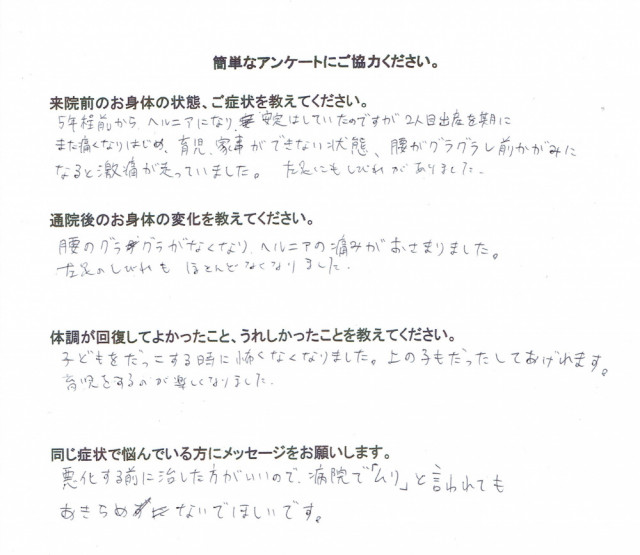 簡単なアンケートにご協力ください。
来院前のお身体の状態、ご症状を教えてください。
5年程前から、ヘルニアになり、安定はしていたのですが2人目出産を期に
また痛くなりはじめ、育児、家事ができない状態、腰がグラグラし前かがみに
なると激痛が走っていました。 左足にもしびれがありました。
通院後のお身体の変化を教えてください。
腰のグラグラがなくなり、ヘルニアの痛みがおさまりました。
左足のしびれもほとんどなくなりました。
体調が回復してよかったこと、うれしかったことを教えてください。
子どもをだっこする時に怖くなくなりました。上の子もだったしてあげれます。
育児をするのが楽しくなりました。
同じ症状で悩んでいる方にメッセージをお願いします。
悪化する前に治した方がいいので、病院で「ムリ」と言われても
あきらめないでほしいです。